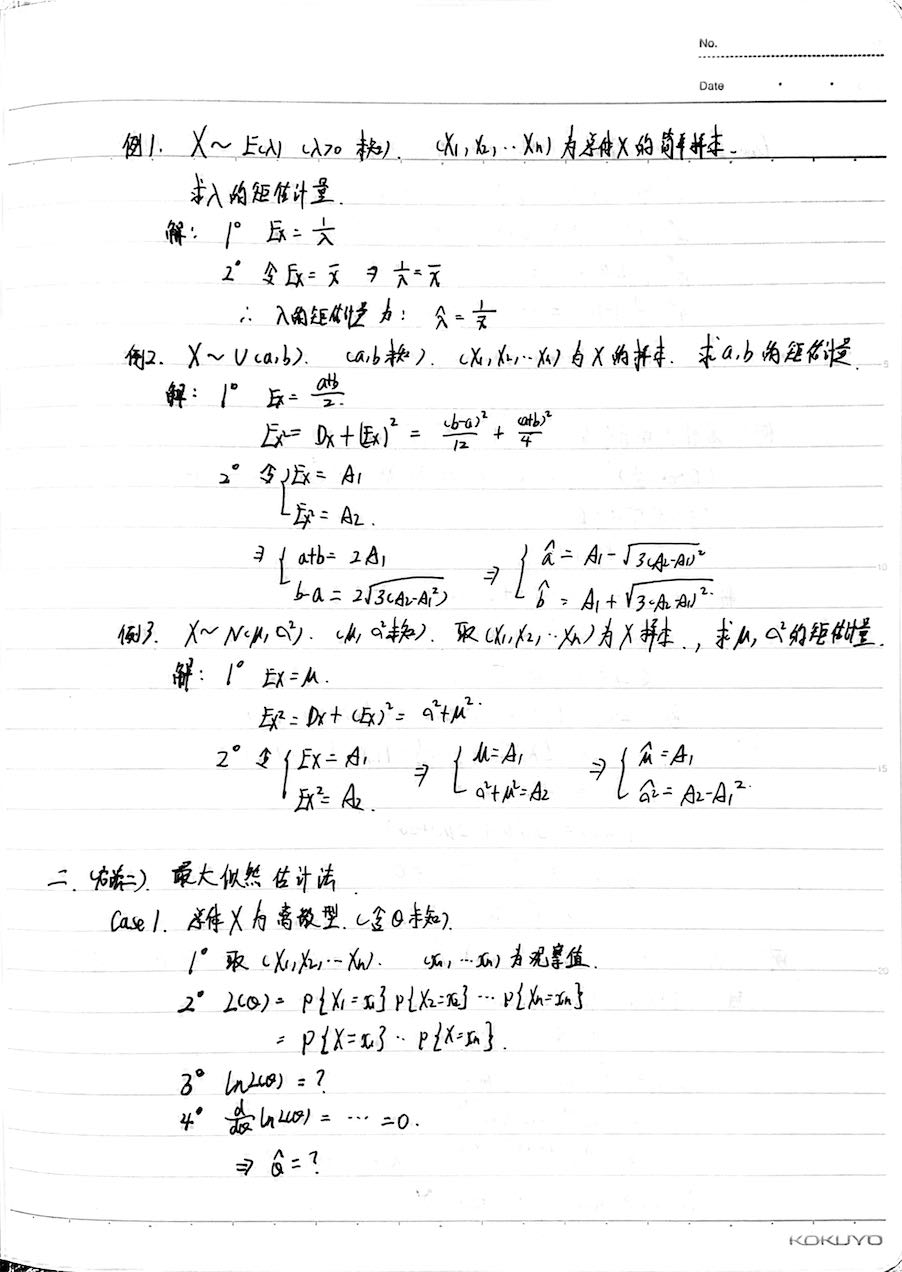 No.
Date
例1. X～E(λ) (λ>0 未知). (X1, X2, ··· Xn) 为总体X的简单样本.
求λ的矩估计量.
解: 1° EX = 1/λ
2° 令EX = X̄ ⇒ 1/λ = X̄
∴ λ的矩估计量为: λ̂ = 1/X̄
例2. X～U(a,b). (a,b未知). (X1, X2, ··· Xn)为X的样本. 求a,b的矩估计量.
5
解: 1° EX = (a+b)/2.
EX² = DX + (EX)² = (b-a)²/12 + (a+b)²/4
2° 令{ EX = A1
EX² = A2.
⇒ { a+b = 2A1 ⇒ { â = A1 - √3(A2-A1)²
10
b-a = 2√3(A2-A1²) b̂ = A1 + √3(A2-A1)².
例3. X～N(μ, σ²). (μ, σ²未知). 取(X1, X2, ··· Xn)为X样本., 求μ, σ²的矩估计量.
解: 1° EX = μ.
EX² = DX + (EX)² = σ²+μ².
2° 令{ EX = A1 ⇒ { μ = A1 ⇒ { μ̂ = A1
15
EX² = A2. σ²+μ² = A2 σ̂² = A2-A1².
二. (方法二). 最大似然估计法
Case 1. 总体X为离散型. (含θ未知).
1° 取 (X1, X2, ··· Xn). (x1, ··· xn)为观察值.
20
2° L(θ) = P{X1=x1}P{X2=x2} ··· P{Xn=xn}
= P{X=x1} ·· P{X=xn}.
3° lnL(θ) = ?
4° d/dθ lnL(θ) = ··· = 0.
⇒ θ̂ = ?
KOKUYO